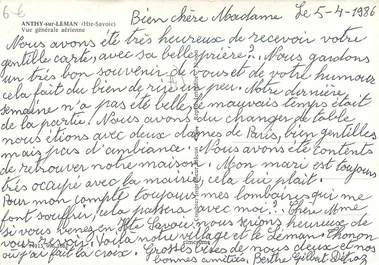 6-6
ANTHY-sur-LEMAN (Hte-Savoie)
Vue générale aérienne
Bien chère Madame le 5-4-1986
Nous avons été très heureux de recevoir votre
gentille carte, avec sa belle prière?. Nous gardons
un très bon souvenir de vous et de votre humour
cela fait du bien de rire un peu. Notre dernière
semaine n'a pas été belle, le mauvais temps était
de la partie. Nous avons du changer de table
nous étions avec deux dames de Paris, bien gentilles
mais pas d'ambiance. Nous avons été contents
de retrouver notre maison. Mon mari est toujours
très occupé avec la mairie, cela lui plait.
Pour mon compte toujours mes lombaires qui me
font souffrir, cela passera avec moi?. Chère Mme
si vous venez en Hte Savoie nous serions heureux de
vous voir. Voilà notre village et le Léman. Thonon
où j'ai fait la croix. Grosses bises de nous deux et nos
bonnes amitiés. Berthe Gilbert